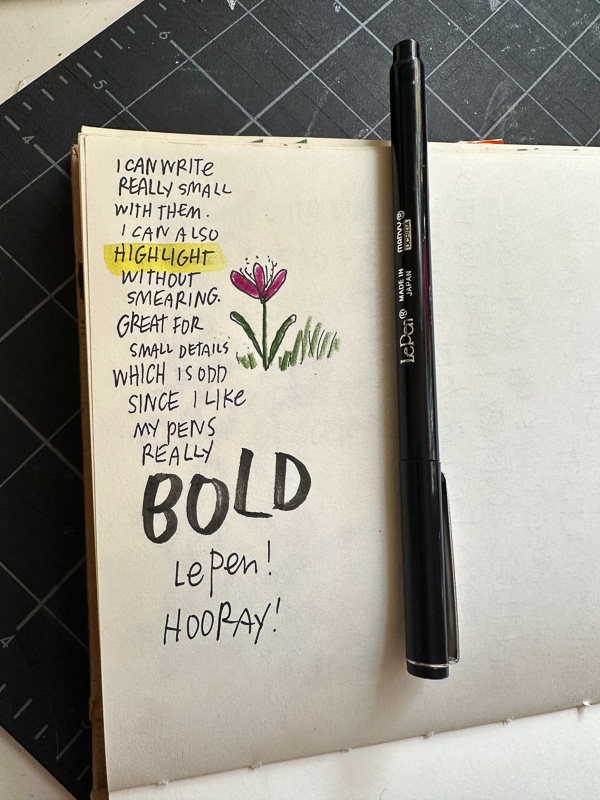 I CAN WRITE
REALLY SMALL
WITH THEM.
I CAN ALSO
HIGHLIGHT
WITHOUT
SMEARING.
GREAT FOR
SMALL DETAILS
WHICH IS ODD
SINCE I LIKE
MY PENS
REALLY
BOLD
LePen!
HOORAY!
LePen®
MADE IN
JAPAN
marvy®
UCHIDA
6
5
4